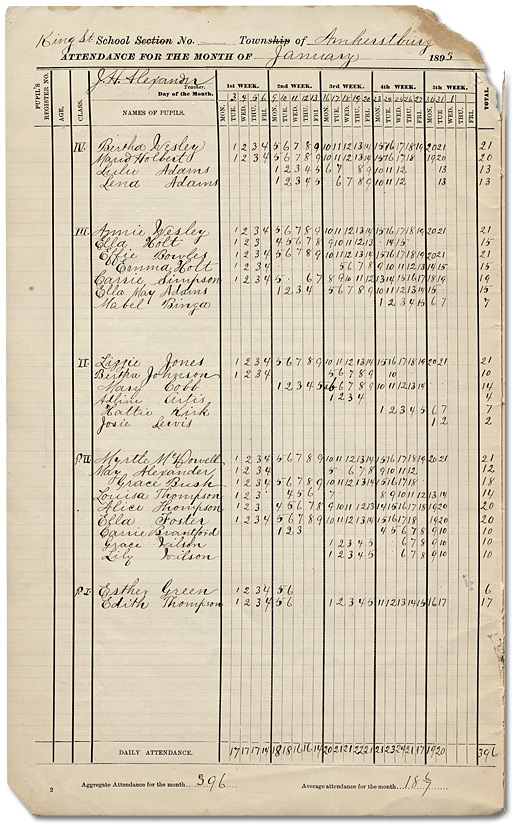 King St. School Section No. Township of Amherstburg
ATTENDANCE FOR THE MONTH OF January 1893
J. H. Alexander Teacher.
PUPIL'S REGISTER NO. AGE. CLASS. Day of the Month. NAMES OF PUPILS. 1st WEEK. 2nd WEEK. 3rd WEEK. 4th WEEK. 5th WEEK. TOTAL.
3 4 5 6 9 10 11 12 13 16 17 18 19 20 23 24 25 26 27 30 31 1
MON. TUE. WED. THU. FRI. MON. TUE. WED. THU. FRI. MON. TUE. WED. THU. FRI. MON. TUE. WED. THU. FRI. MON. TUE. WED. THU. FRI.
IV. Bertha Wesley 1 2 3 4 5 6 7 8 9 10 11 12 13 14 15 16 17 18 19 20 21 21
Maria Holbert 1 2 3 4 5 6 7 8 9 10 11 12 13 14 15 16 17 18 19 20 20
Leslie Adams 1 2 3 4 5 6 7 8 9 10 11 12 13 13
Lena Adams 1 2 3 4 5 6 7 8 9 10 11 12 13 13
III. Annie Wesley 1 2 3 4 5 6 7 8 9 10 11 12 13 14 15 16 17 18 19 20 21 21
Ella Holt 1 2 3 4 5 6 7 8 9 10 11 12 13 14 15 15
Effie Bowles 1 2 3 4 5 6 7 8 9 10 11 12 13 14 15 16 17 18 19 20 21 21
Emma Holt 1 2 3 4 5 6 7 8 9 10 11 12 13 14 15 15
Carrie Simpson 1 2 3 4 5 6 7 8 9 10 11 12 13 14 15 16 17 18 19 19
Ella May Adams 1 2 3 4 5 6 7 8 9 10 11 12 13 14 15 15
Mabel Binga 1 2 3 4 5 6 7 7
II Lizzie Jones 1 2 3 4 5 6 7 8 9 10 11 12 13 14 15 16 17 18 19 20 21 21
Bertha Johnson 1 2 3 4 5 6 7 8 9 10 10
Mary Cobb 1 2 3 4 5 6 7 8 9 10 11 12 13 14 14
Artis 1 2 3 4 4
Hattie Kirk 1 2 3 4 5 6 7 7
Josie Lewis 1 2 2
P. II Myrtle McDowell 1 2 3 4 5 6 7 8 9 10 11 12 13 14 15 16 17 18 19 20 21 21
May Alexander 1 2 3 4 5 6 7 8 9 10 11 12 12
Grace Bush 1 2 3 4 5 6 7 8 9 10 11 12 13 14 15 16 17 18 18
Louisa Thompson 1 2 3 4 5 6 7 8 9 10 11 12 13 14 14
Alice Thompson 1 2 3 4 5 6 7 8 9 10 11 12 13 14 15 16 17 18 19 20 20
Ella Foster 1 2 3 4 5 6 7 8 9 10 11 12 13 14 15 16 17 18 19 20 20
Carrie Brantford 1 2 3 4 5 6 7 8 9 10 10
Grace Wilson 1 2 3 4 5 6 7 8 9 10 10
Lily Wilson 1 2 3 4 5 6 7 8 9 10 10
P. I. Esther Green 1 2 3 4 5 6 6
Edith Thompson 1 2 3 4 5 6 1 2 3 4 5 11 12 13 14 15 16 17 17
DAILY ATTENDANCE. 17 17 17 14 18 18 16 16 14 20 21 21 22 21 21 23 24 21 17 19 20 396
Aggregate Attendance for the month 396 Average attendance for the month 18 6/7
2